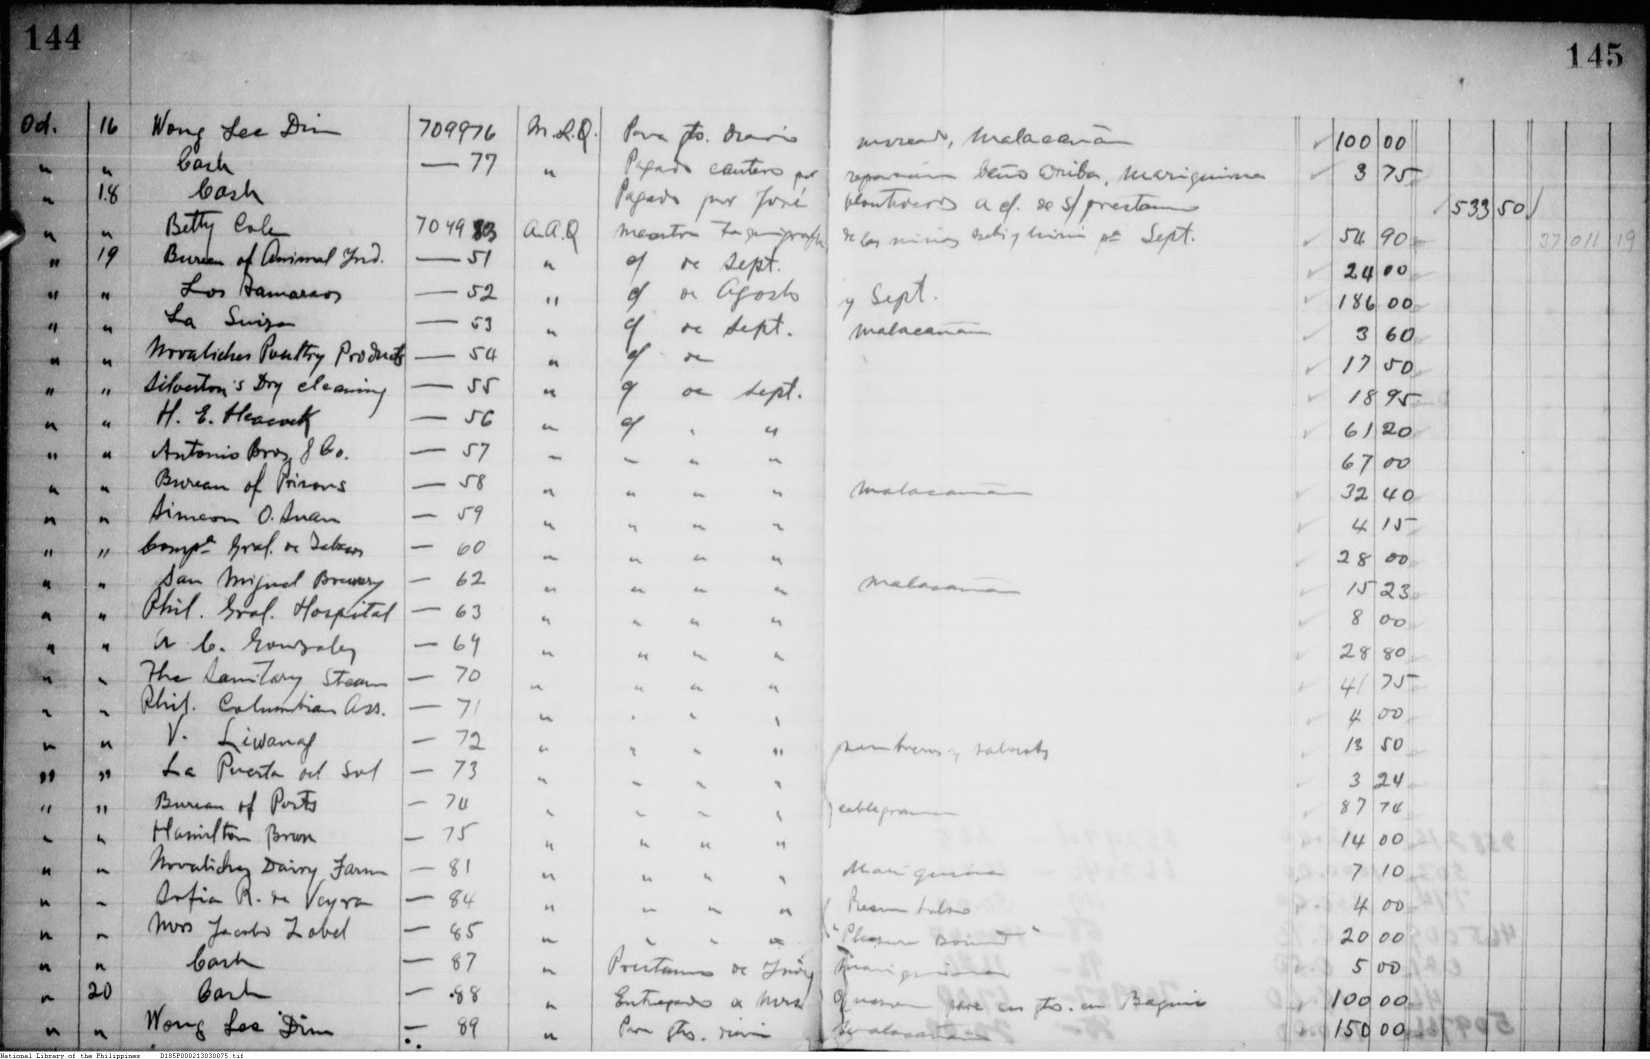 144
145
Oct. 16 Wong Lee Dim 709976 M.L.Q. Para gto. diario mercado, Malacañan 100 00
" " Cash — 77 " Pagado cantero por reparación baño arriba, Mariquina 3 75
" 18 Cash Pagado por José a c/. de s/ prestamo 533 50
" " Betty 704983 A.A.Q de las niñas y Sept. 54 90 37 011 19
" 19 Bureau of Animal Ind. — 51 " c/ de Sept. 24 00
" " Los Tamaraos — 52 " c/ de Agosto y Sept. 186 00
" " La Suiza — 53 " c/ de Sept. Malacañan 3 60
" " Novaliches Poultry Products — 54 " c/ de 17 50
" " Silverton's Dry cleaning — 55 " c/ de Sept. 18 95
" " H. E. Heacock — 56 " c/ " " 61 20
" " Antonio Bros & Co. — 57 " " " " 67 00
" " Bureau of Prisons — 58 " " " " Malacañan 32 40
" " Simeon O. — 59 " " " " 4 15
" " Compª Gral. de Tabacos — 60 " " " " 28 00
" " San Miguel Brewery — 62 " " " " Malacañan 15 23
" " Phil. Gral. Hospital — 63 " " " " 8 00
" " A. C. Gonzalez — 64 " " " " 28 80
" " The Sanitary Steam — 70 " " " " 41 75
" " Phil. Columbian Ass. — 71 " " " " 4 00
" " V. Liwanag — 72 " " " " 13 50
" " La Puerta del Sol — 73 " " " " 3 24
" " Bureau of Posts — 74 " " " " cablegramas 87 74
" " Hamilton Brown — 75 " " " " 14 00
" " Novaliches Dairy Farm — 81 " " " " Mariquina 7 10
" " Sofia R. de Veyra — 84 " " " " 4 00
" " Mrs Jacobo Zobel — 85 " " " " "Pleasure Bound" 20 00
" " Cash — 87 " Prestamo de Mariquina 5 00
" 20 Cash — 88 " Entregado a Mrs. para sus gto. en Baguio 100 00
" " Wong Lee Dim — 89 " Para gto. diario Malacañan 150 00
National Library of the Philippines D185P000213030075.tif